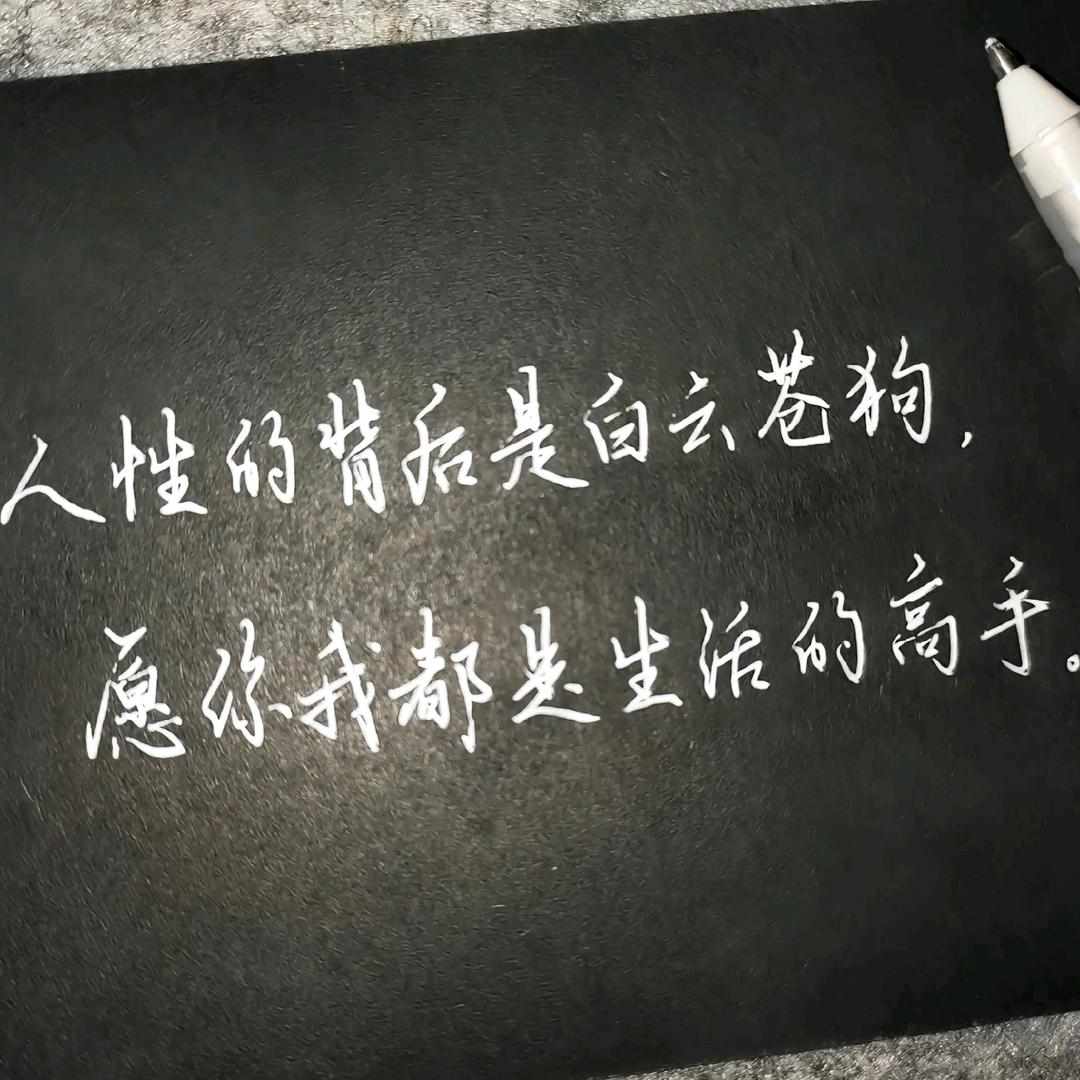 人性的背后是白云苍狗,
愿你我都是生活的高手。